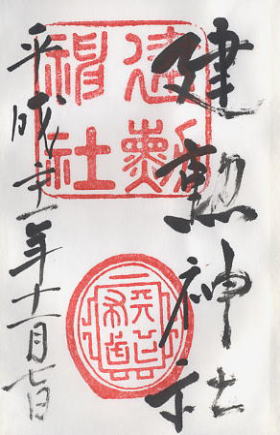 建勲神社
平成廿一年十一月七日
建勲神社